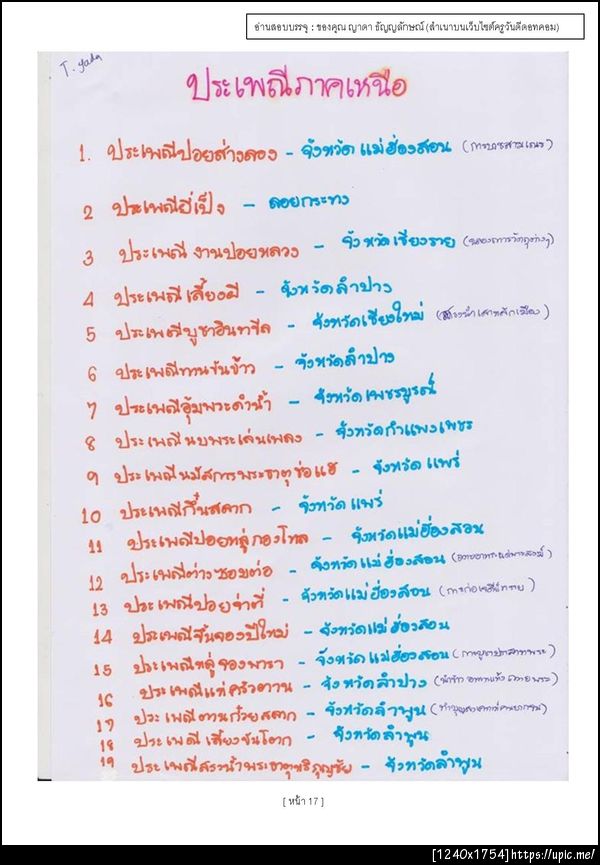 อ่านสอบบรรจุ : ของคุณ ญาดา ธัญญลักษณ์ (สำเนาบนเว็บไซต์ครูวันดีดอทคอม)
T. yada
ประเพณีภาคเหนือ
1. ประเพณีปอยส่างลอง - จังหวัดแม่ฮ่องสอน (การบวชสามเณร)
2 ประเพณียี่เป็ง - ลอยกระทง
3 ประเพณี งานปอยหลวง - จังหวัดเชียงราย
4 ประเพณีเลี้ยงผี - จังหวัดลำปาง
5 ประเพณีบูชาอินทขีล - จังหวัดเชียงใหม่ (สรงน้ำเสาหลักเมือง)
6 ประเพณีทานขันข้าว - จังหวัดลำปาง
7 ประเพณีอุ้มพระดำน้ำ - จังหวัดเพชรบูรณ์
8 ประเพณีนบพระเล่นเพลง - จังหวัดกำแพงเพชร
9 ประเพณีนมัสการพระธาตุช่อแฮ - จังหวัดแพร่
10 ประเพณีกิ๋นสลาก - จังหวัดแพร่
11 ประเพณีปอยหลู่กองโหล - จังหวัดแม่ฮ่องสอน
12 ประเพณีต่างซอมต่อ - จังหวัดแม่ฮ่องสอน
13 ประเพณีปอยจ่าตี่ - จังหวัดแม่ฮ่องสอน (การก่อเจดีย์ทราย)
14 ประเพณีขึ้นจองปีใหม่ - จังหวัดแม่ฮ่องสอน
15 ประเพณีหลู่จองพารา - จังหวัดแม่ฮ่องสอน (การบูชาปราสาทพระ)
16 ประเพณีแห่ครัวตาน - จังหวัดลำปาง
17 ประเพณีตานก๋วยสลาก - จังหวัดลำพูน
18 ประเพณีเลี้ยงขันโตก - จังหวัดลำพูน
19 ประเพณีสรงน้ำพระธาตุหริภุญชัย - จังหวัดลำพูน
[ หน้า 17 ]
[1240x1754]https://upic.me/